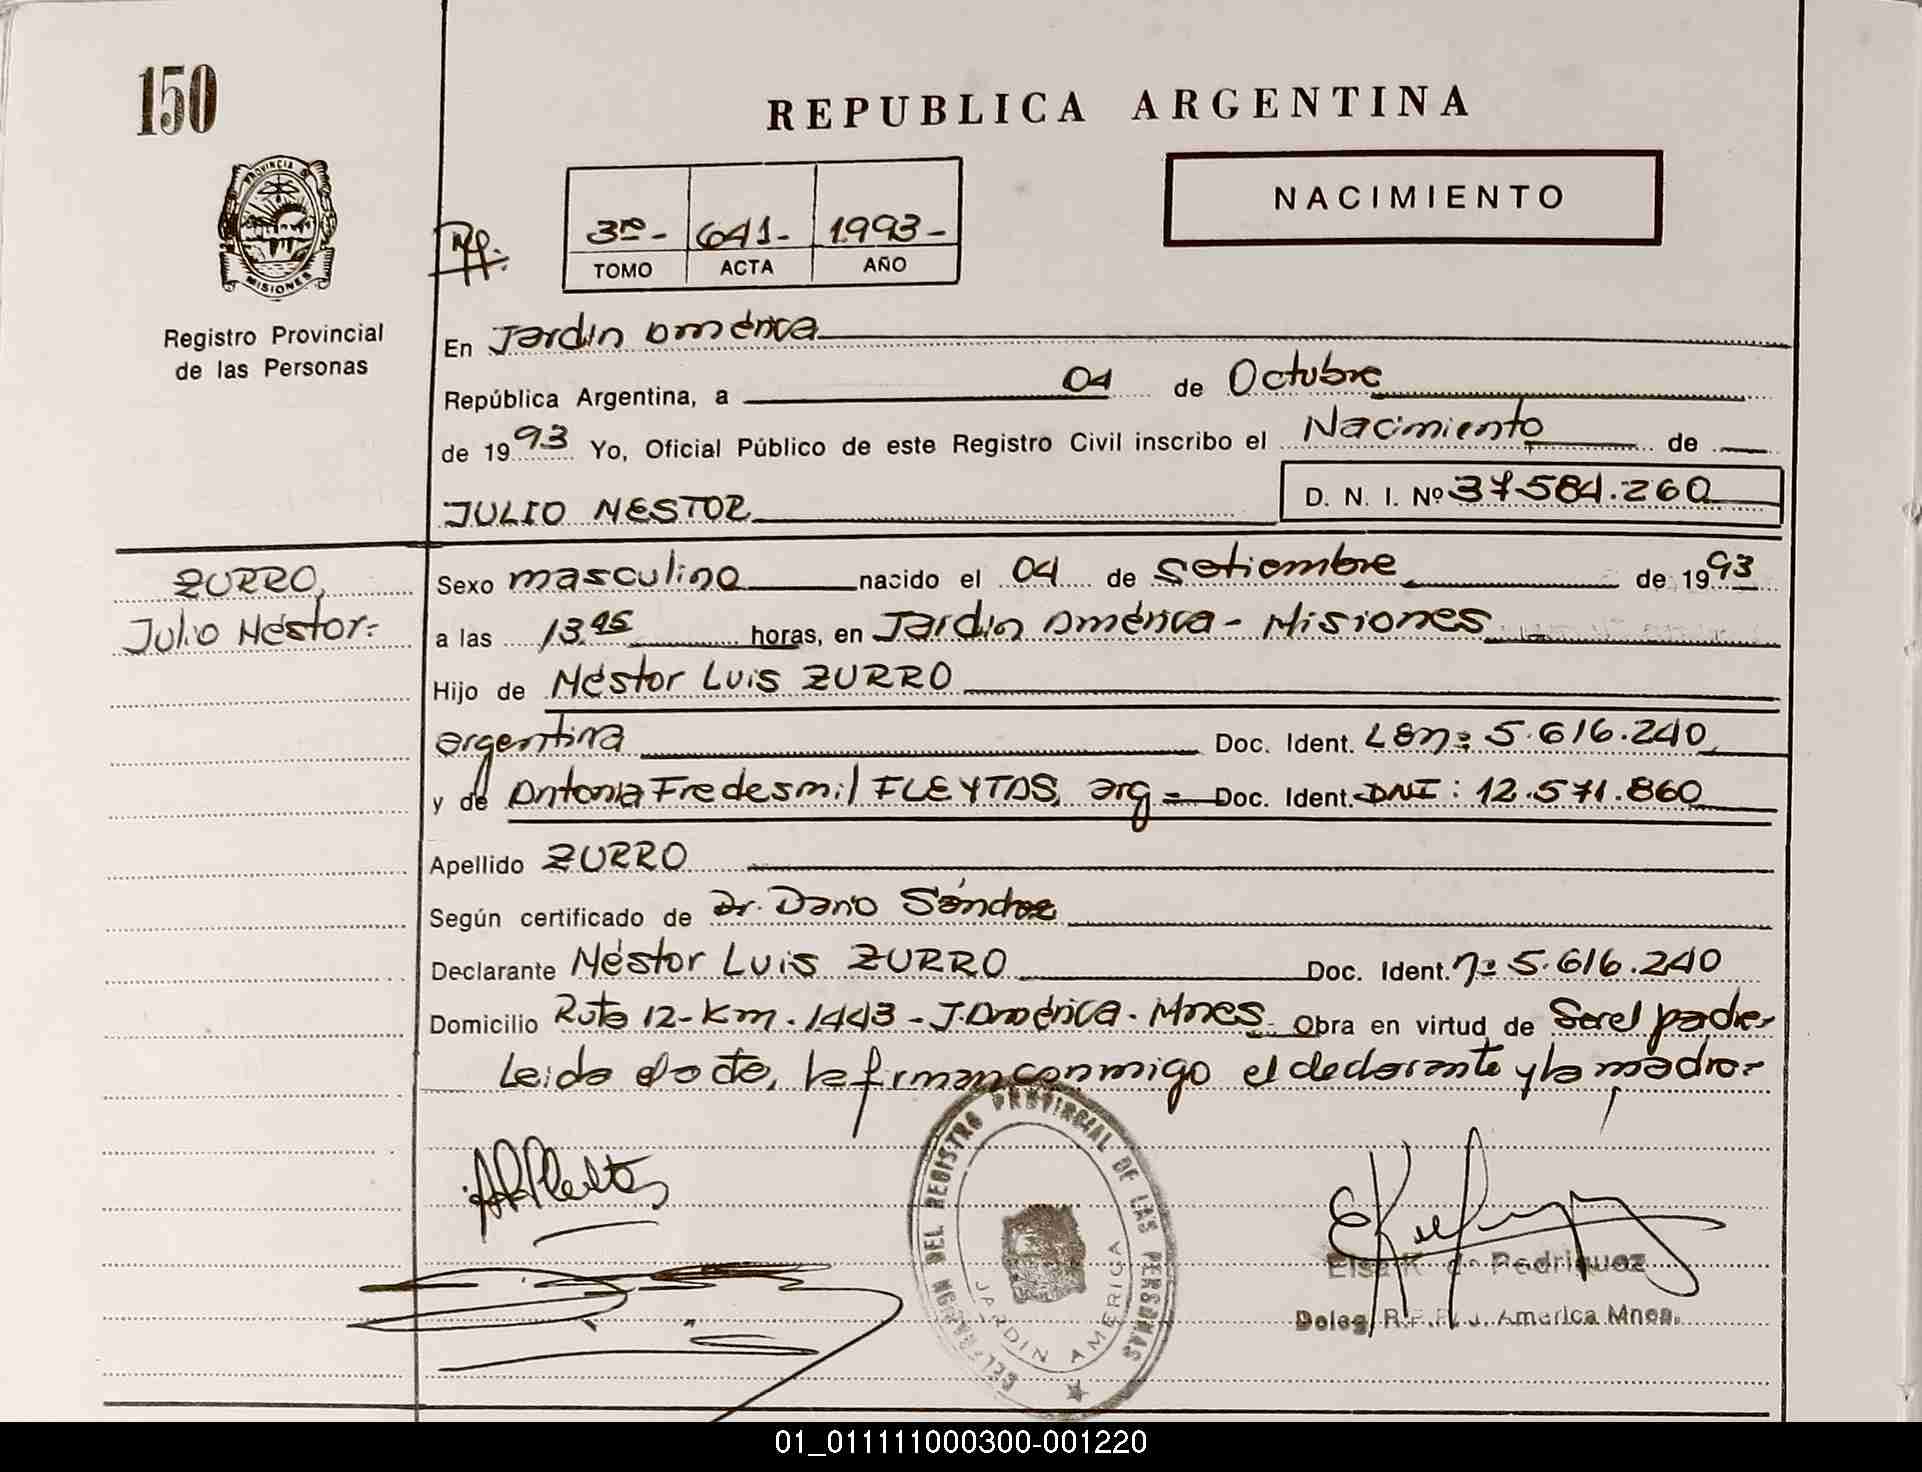 150
REPUBLICA ARGENTINA
PROVINCIA D MISIONES
NACIMIENTO
3ro- 641- 1993-
TOMO ACTA AÑO
Registro Provincial
de las Personas
En Jardin América
República Argentina, a 04 de Octubre
de 1993 Yo, Oficial Público de este Registro Civil inscribo el Nacimiento de
JULIO NESTOR D. N. I. Nº 37.584.260
ZURRO,
Julio Néstor=
Sexo masculino nacido el 04 de Setiembre de 1993
a las 13,45 horas, en Jardin América - Misiones
Hijo de Néstor Luis ZURRO
argentina Doc. Ident. LEnº 5.616.240
y de Antonia Fredesmil FLEYTAS, arg= Doc. Ident. DNI: 12.571.860
Apellido ZURRO
Según certificado de Dr. Dario Sánchez
Declarante Néstor Luis ZURRO Doc. Ident. nº 5.616.240
Domicilio Ruta 12-Km. 1443 - J. América. Mnes. Obra en virtud de Ser el padre-
Leida el acta, la firman conmigo el declarante y la madre=
DEL REGISTRO PROVINCIAL DE LAS PERSONAS
JARDIN AMERICA
Elsa K. de Rodriguez
Deleg. R.P.P. J. America Mnes.
01_011111000300-001220